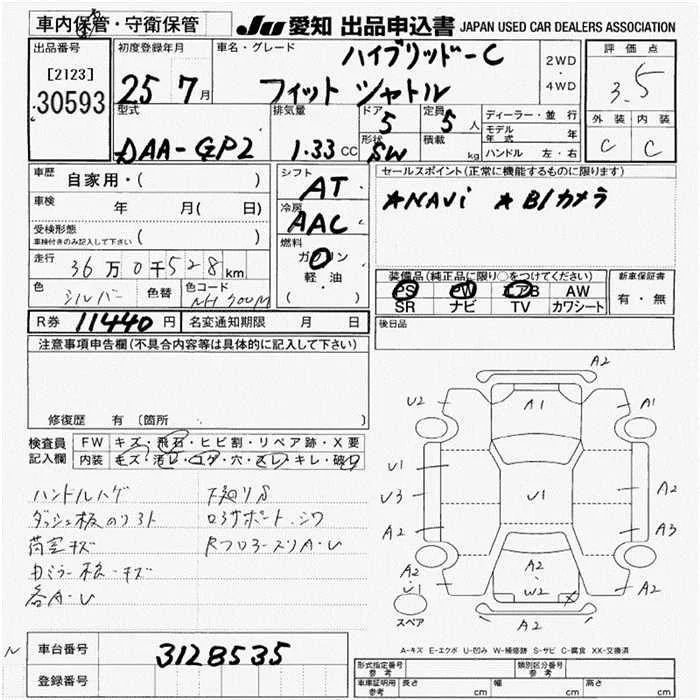 車内保管・守衛保管
JU 愛知 出品申込書 JAPAN USED CAR DEALERS ASSOCIATION
出品番号
[2123]
30593
初度登録年月
25 7月
車名・グレード
ハイブリッド-C
フィット シャトル
2WD
・
4WD
評価点
3.5
外装 内装
C C
型式
DAA-GP2
排気量
1.33 CC
ドア
5
形状
SW
定員
5人
積載
kg
ディーラー・並行
モデル年式 年
ハンドル 左・右
車歴
自家用・( )
車検
年 月( 日)
受検形態
車検付きのみ記入して下さい ( )
走行
36万0千528km
色
シルバー
色替
色コード
NH700M
シフト
AT
冷房
AAC
燃料
ガソリン
軽・油
( )
セールスポイント(正常に機能するものに限ります)
★NAVi ★B/カメラ
装備品(純正品に限り○をつけてください)
PS PW エアB AW
SR ナビ TV カワシート
新車保証書
有・無
後日品
R券 11440円 名変通知期限 月 日
注意事項申告欄(不具合内容等は具体的に記入して下さい)
修復歴 有〔箇所 〕
検査員記入欄
FW キズ・飛石・ヒビ割・リペア跡・X要
内装 キズ・汚レ・コゲ・穴・スレ・キレ・破レ
ハンドルハゲ
ダッシュ板のリヨト
荷室キズ
各A・U
下廻りS
A2
U2
A1
A1
U1
U3
A2
U1
A2
A3
A2・U1
A2・W2
X
A2
A2
スペア
A-キズ E-エクボ U-凹み W-補修跡 S-サビ C-腐食 XX-交換済
N
車台番号 3128535
登録番号
形式指定番号 参考
類別区分番号 参考
車庫証明用 参考
長さ cm
幅 cm
高さ cm